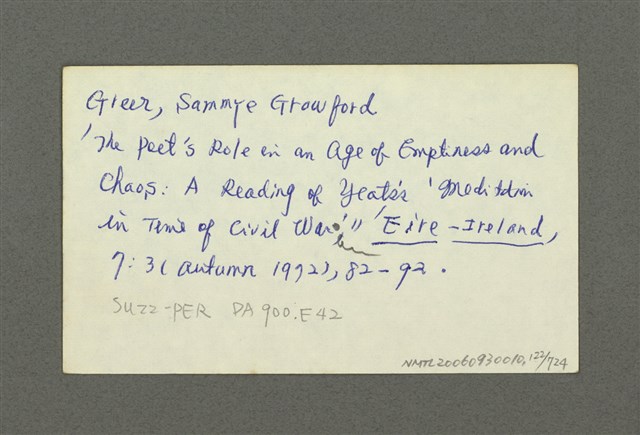 Greer, Sammye Crawford
"The Poet's Role in an Age of Emptiness and
Chaos: A Reading of Yeats's 'Meditation
in Time of Civil War'" Eire-Ireland,
7:3 (autumn 1972), 82-92.
SUZZ-PER DA900.E42
NMTL20060930010,122/724